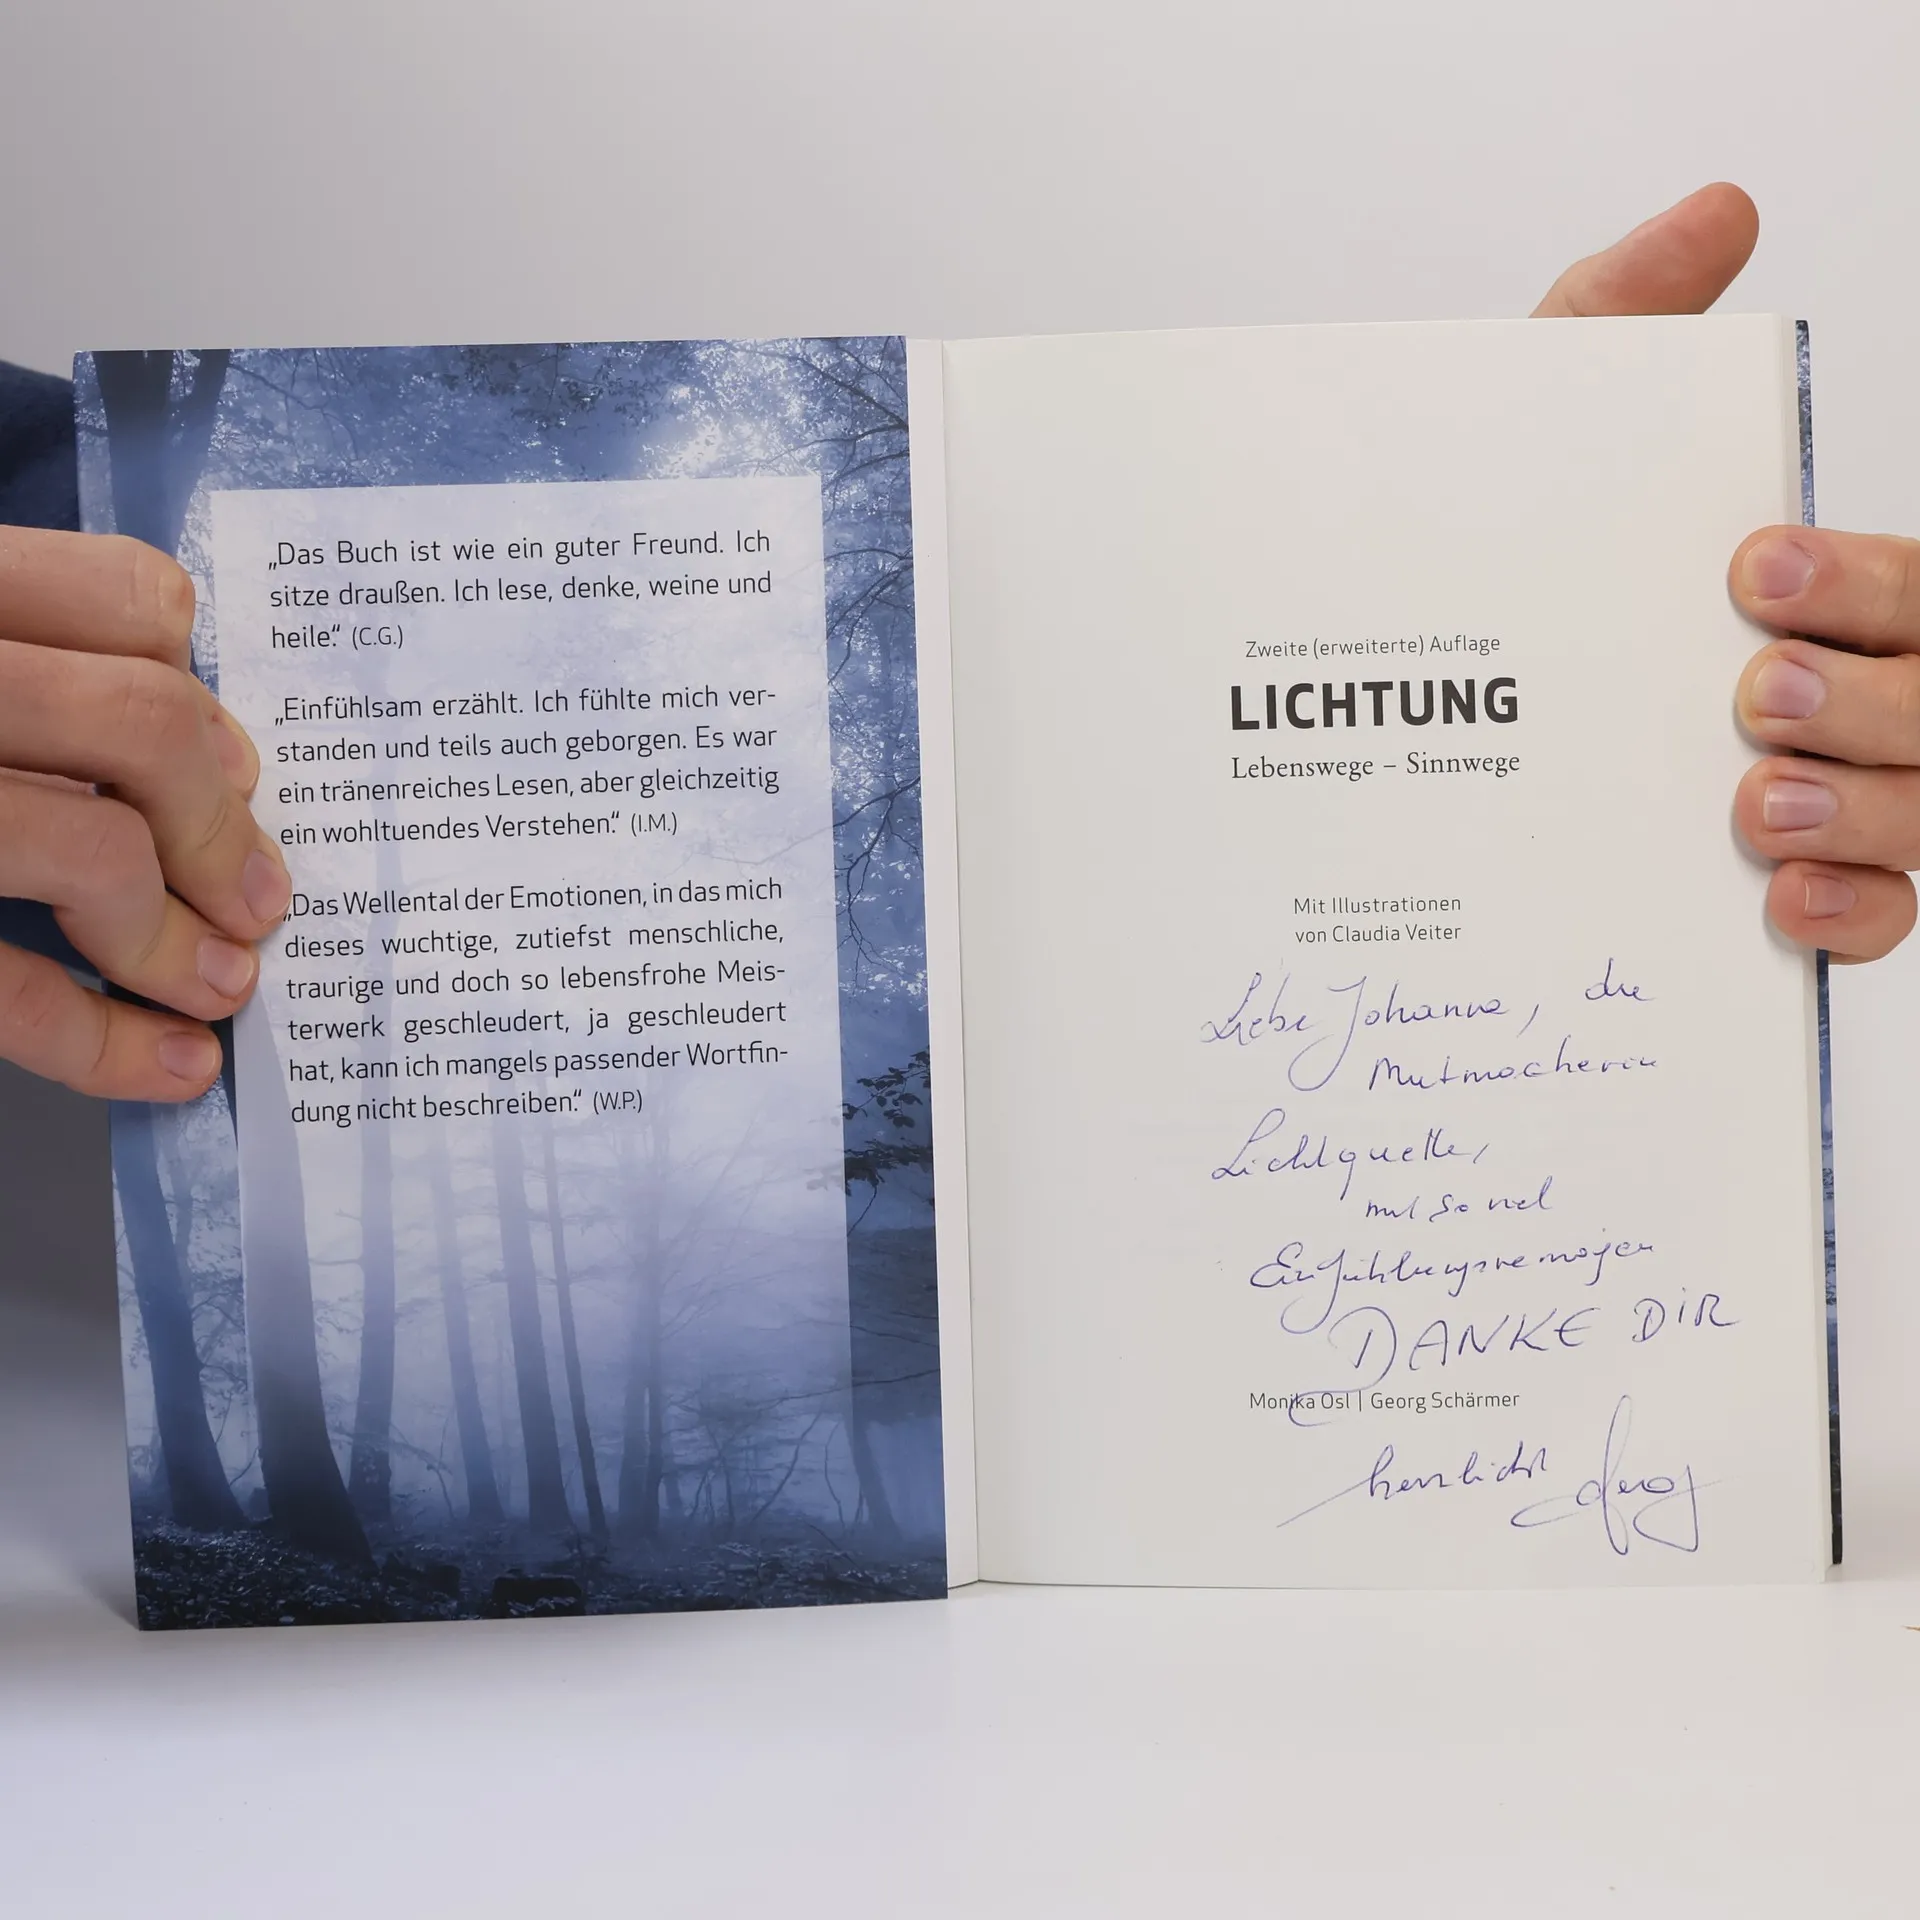 „Das Buch ist wie ein guter Freund. Ich
sitze draußen. Ich lese, denke, weine und
heile.“ (C.G.)
„Einfühlsam erzählt. Ich fühlte mich ver-
standen und teils auch geborgen. Es war
ein tränenreiches Lesen, aber gleichzeitig
ein wohltuendes Verstehen.“ (I.M.)
„Das Wellental der Emotionen, in das mich
dieses wuchtige, zutiefst menschliche,
traurige und doch so lebensfrohe Meis-
terwerk geschleudert, ja geschleudert
hat, kann ich mangels passender Wortfin-
dung nicht beschreiben.“ (W.P.)
Zweite (erweiterte) Auflage
LICHTUNG
Lebenswege – Sinnwege
Mit Illustrationen
von Claudia Veiter
Liebe Johanna, die
Mutmacherin
Lichtquelle,
mit so viel
Einfühlungsvermögen
DANKE DIR
Monika Osl | Georg Schärmer
herzlichst Georg